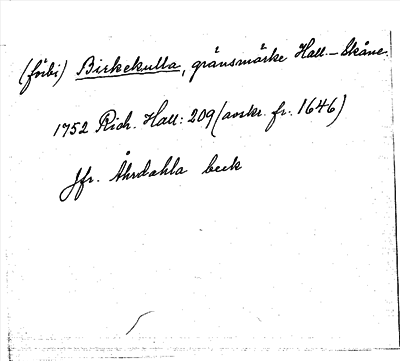 (förbi) Birkekulla, gränsmärke Hall.–Skåne.
1752 Rich. Hall: 209 (avskr. fr. 1646)
Jfr. Åhrdahla beek